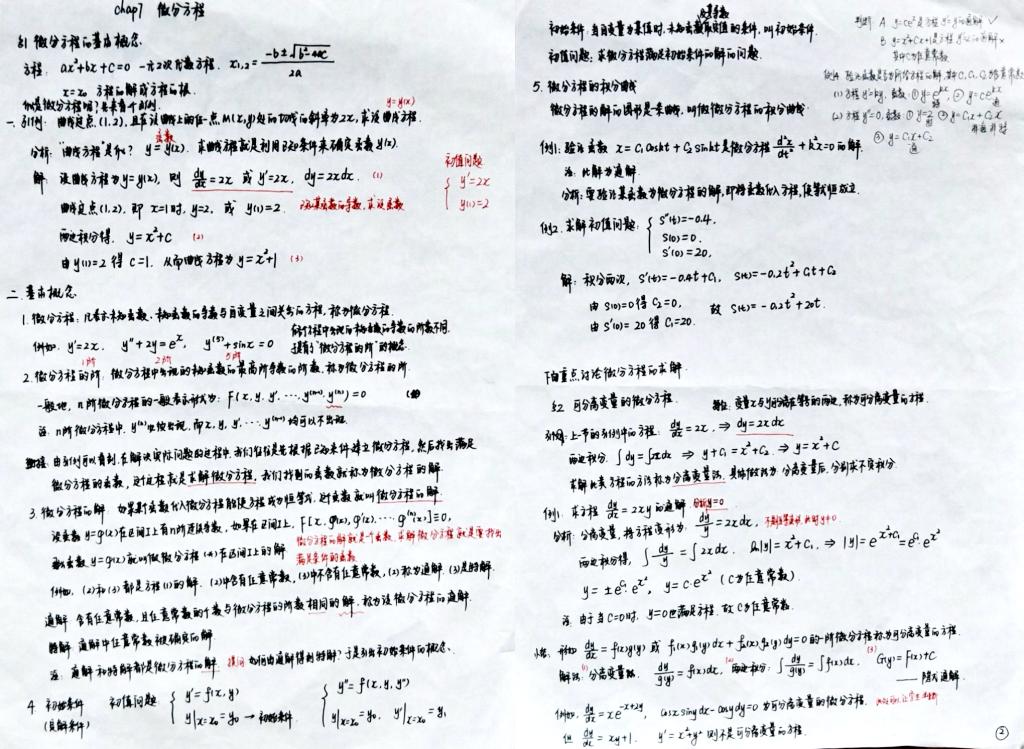 chap7 微分方程
§1 微分方程的基本概念
方程: ax²+bx+c=0 一元2次代数方程. x₁,₂= (-b±√(b²-4ac))/2a
x=x₀ 方程的解或方程的根.
什么是微分方程呢?先来看个引例.
y=y(x)
一. 引例: 曲线过点(1,2), 且在该曲线上的任一点M(x,y)处的切线的斜率为2x, 求该曲线方程.
函数
分析: "曲线方程"是什么? y=y(x). 求曲线方程就是利用已知条件来确定函数y(x).
解 设曲线方程为y=y(x), 则 dy/dx=2x 或 y'=2x, dy=2xdx. (1)
初值问题
{ y'=2x
y(1)=2
曲线过点(1,2), 即 x=1时, y=2, 或 y(1)=2. 已知某函数的导数, 求该函数
两边积分得, y=x²+C (2)
由y(1)=2得 C=1. 从而曲线方程为y=x²+1 (3)
二. 基本概念
1. 微分方程: 凡表示未知函数、未知函数的导数与自变量之间关系的方程, 称为微分方程.
例如, y'=2x, y''+2y=eˣ, y⁽⁵⁾+sinx=0
1阶 2阶 5阶
每个方程中出现的未知函数的导数的阶数不同,
于是有了"微分方程的阶"的概念.
2. 微分方程的阶: 微分方程中出现的未知函数的最高阶导数的阶数, 称为微分方程的阶.
一般地, n阶微分方程的一般表示形式为: F(x, y, y', ⋯, y⁽ⁿ⁻¹⁾, y⁽ⁿ⁾)=0
注: n阶微分方程中, y⁽ⁿ⁾必须出现, 而x, y, y', ⋯ y⁽ⁿ⁻¹⁾均可以不出现.
由引例可以看到, 在解决实际问题的过程中, 我们往往是先根据已知条件建立微分方程, 然后找出满足
微分方程的函数, 这个过程就是求解微分方程, 我们找到的函数就称为微分方程的解
3. 微分方程的解 如果某个函数代入微分方程能使方程成为恒等式, 这个函数就叫做微分方程的解.
设函数y=φ(x)在区间I上有n阶连续导数, 如果在区间I上, F[x, φ(x), φ'(x), ⋯ φ⁽ⁿ⁾(x)]≡0,
那么函数y=φ(x)就叫做微分方程在区间I上的解
微分方程的解就是一个函数, 求解微分方程就是要找出
满足条件的函数
例如, (2)和(3)都是方程(1)的解. (2)中含有任意常数, (3)中不含有任意常数, (2)称为通解. (3)是特解.
通解 含有任意常数, 且任意常数的个数与微分方程的阶数相同的解, 称为该微分方程的通解.
特解 通解中任意常数被确定的解
注: 通解和特解都是微分方程的解. 提问 如何由通解得到特解? 于是引出初始条件的概念.
4. 初始条件 初值问题 { y'=f(x,y) { y''=f(x,y,y')
(定解条件) y|x=x₀=y₀ → 初始条件 y|x=x₀=y₀, y'|x=x₀=y₁
初始条件: 当自变量为某值时, 未知函数取定值的条件, 叫初始条件.
初值问题: 求微分方程满足初始条件的解的问题.
5. 微分方程的积分曲线
微分方程的解的图形是一条曲线, 叫做微分方程的积分曲线.
例1: 验证函数 x=C₁coskt+C₂sinkt是微分方程 d²x/dt²+k²x=0的解.
注: 此解为通解.
分析: 要验证某函数为微分方程的解, 即将函数代入方程, 使等式恒成立.
例2. 求解初值问题: { S''(t)=-0.4,
S(0)=0.
S'(0)=20,
解: 积分两次, S'(t)=-0.4t+C₁, S(t)=-0.2t²+C₁t+C₂
由 S(0)=0得 C₂=0, 故 S(t)=-0.2t²+20t.
由 S'(0)=20得 C₁=20.
下面重点讨论微分方程的求解.
§2 可分离变量的微分方程.
引例: 上节的引例中的方程: dy/dx=2x, ⇒ dy=2xdx
两边积分 ∫dy=∫2xdx ⇒ y+C₁=x²+C₂ ⇒ y=x²+C
求解此类方程的方法称为分离变量法, 具体做法为: 分离变量后, 分别求不定积分.
例1: 求方程 dy/dx=2xy 的通解.
分析: 分离变量, 将方程变形为 dy/y=2xdx,
两边积分得, ∫dy/y=∫2xdx. ln|y|=x²+C₁, ⇒ |y|=e^(x²+C₁)=e^C₁·e^x²
y=±e^C₁·e^x², y=C·e^x² (C为任意常数).
注: 由于当C=0时, y=0也满足方程. 故C为任意常数.
小结: 形如 dy/dx=f(x)g(y) 或 f₁(x)g₁(y)dx+f₂(x)g₂(y)dy=0的一阶微分方程称为可分离变量的方程.
解法: (1) 分离变量 dy/g(y)=f(x)dx, (2) 两边积分: ∫dy/g(y)=∫f(x)dx. (3) G(y)=F(x)+C
—— 隐式通解.
例如, dy/dx=xe^(-x+2y), cosx siny dx-cosy dy=0为可分离变量的微分方程.
但 dy/dx=xy+1, y'=x²+y² 则不是可分离变量的方程.
②